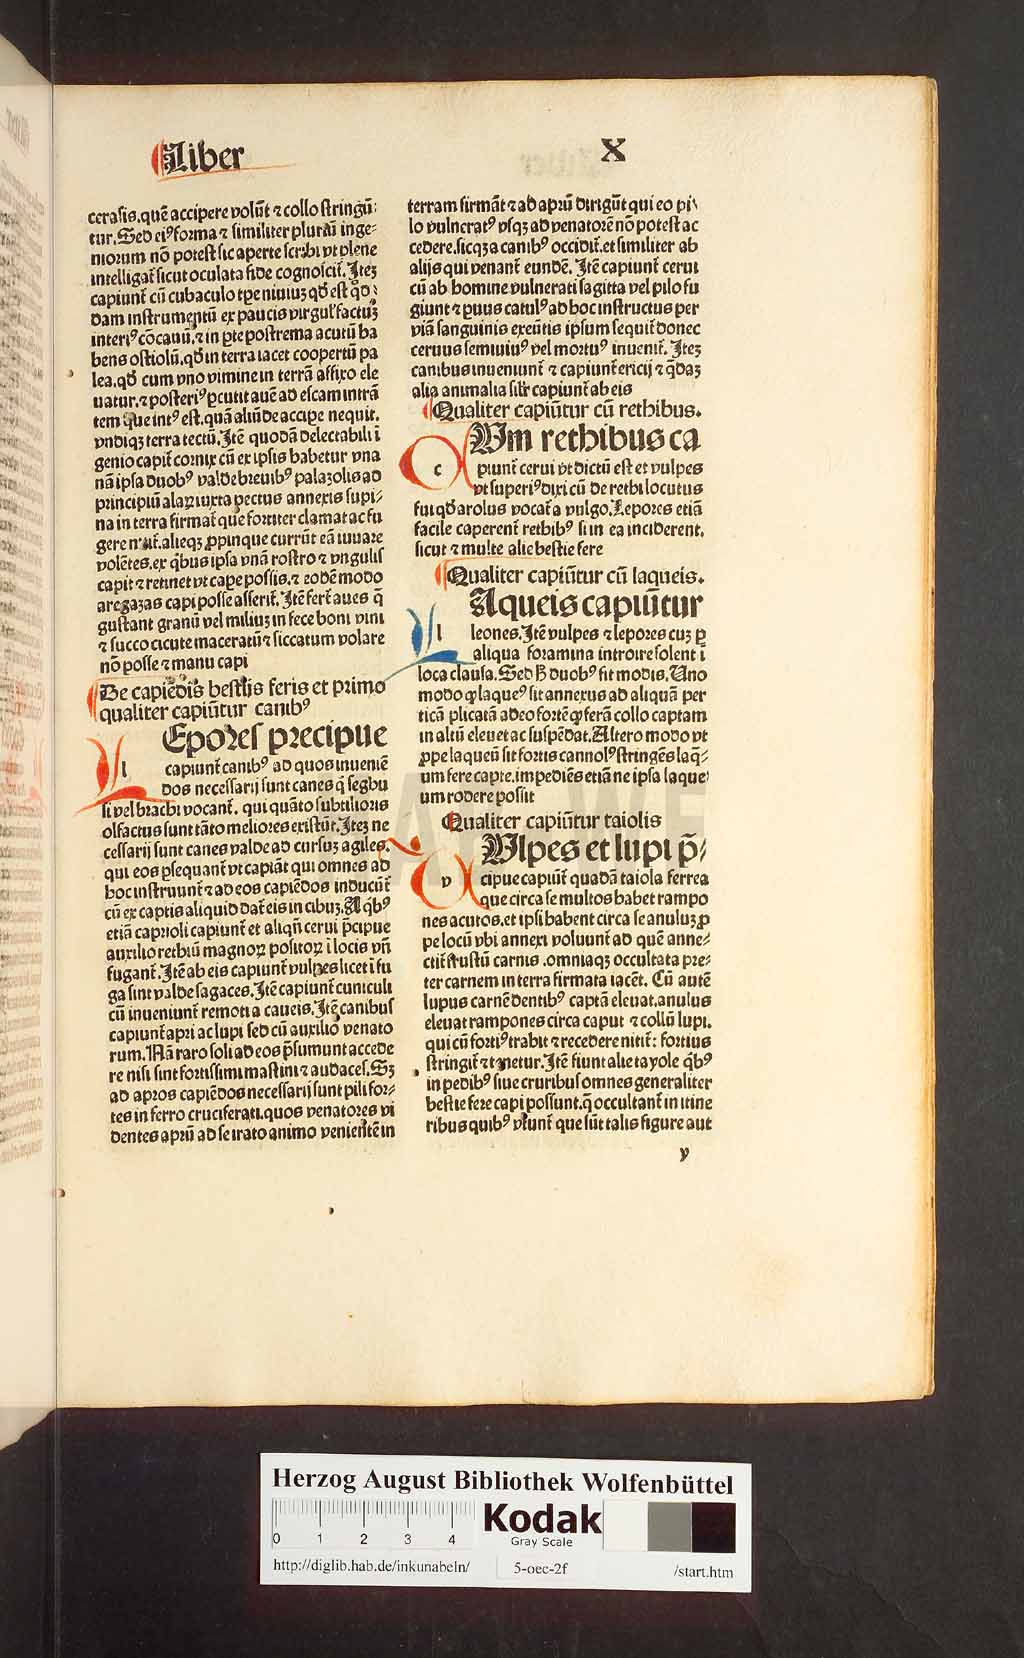 Liber
X
cerasis.quē accipere volūt ⁊ collo stringū⸗
tur. Sed eiꝰ forma ⁊ similiter pluriū inge⸗
niorum nō potest sic aperte scribi vt plene
intelligat̄ sicut oculata fide cognoscit̄. Iteꝫ
capiunt̄ cū cubaculo tpe niuiuꝫ qd̄ est qd̄⸗
dam instrumentū ex paucis virgul̄ factuꝫ
interiꝰ cōcauū.⁊ in ꝑte postrema acutū ha
bens ostiolū.qd̄ in terra iacet coopertū pa
lea.qd̄ cum vno vimine in terrā affixo ele
uatur.⁊ posteriꝰ ꝑcutit auē ad escam intrā
tem que intꝰ est.quā aliūde accipe nequit.
vndiqꝫ terra tectū. Itē quodā delectabili ī
genio capit̄ cornix cū ex ipsis habetur vna
nā ipsa duobꝰ valde breuibꝰ palazolis ad
principiū alaꝝ iuxta pectus annexis supi⸗
na in terra firmat̄ que fortiter clamat ac fu
gere nitit̄.alieqꝫ ꝓpinque currūt eā iuuare
volētes.ex qͥbus ipsa vnā rostro ⁊ vngulis
capit ⁊ retinet vt cape possis.⁊ eodē modo
aregazas capi posse asserit̄. Itē fert̄ aues q̄
gustant granū vel miliuꝫ in fece boni vini
⁊ succo cicute maceratū ⁊ siccatum volare
nō posse ⁊ manu capi
De capiēdis bestijs feris et primo
qualiter capiūtur canibꝰ
l Epores precipue
capiunt̄ canibꝰ ad quos inueniē
dos necessarij sunt canes q̄ segbu
si vel brachi vocant̄. qui quāto subtilioris
olfactus sunt tāto meliores existūt. Iteꝫ ne
cessarij sunt canes valde ad cursuꝫ agiles.
qui eos ꝑsequant̄ vt capiāt qui omnes ad
hoc instruunt̄ ⁊ ad eos capiēdos inducūt̄
cū ex captis aliquid dat̄ eis in cibuꝫ. A qͥbꝰ
etiā caprioli capiunt̄ et aliqn̄ cerui p̄cipue
auxilio rethiū magnoꝝ positoꝝ ī locis vn̄
fugant̄. Itē ab eis capiunt̄ vulpes licet ī fu
ga sint valde sagaces. Itē capiunt̄ cuniculi
cū inueniunt̄ remoti a caueis. Itē canibus
capiunt̄ apri ac lupi sed cū auxilio venato
rum. Nā raro soli ad eos p̄sumunt accede
re nisi sint fortissimi mastini ⁊ audaces. Sꝫ
ad apros capiēdos necessarij sunt pili for⸗
tes in ferro cruciferati.quos venatores vi
dentes aprū ad se irato animo venientē in
terram firmāt ⁊ ad aprū dirigūt qui eo pi⸗
lo vulneratꝰ vsqꝫ ad venatorē nō potest ac
cedere.sicqꝫ a canibꝰ occidit̄.et similiter ab
alijs qui venant̄ eundē. Itē capiunt̄ cerui
cū ab homine vulnerati sagitta vel pilo fu
giunt ⁊ ꝑuus catulꝰ ad hoc instructus per
viā sanguinis exeūtis ipsum sequit̄ donec
ceruus semiuiuꝰ vel mortuꝰ inuenit̄. Iteꝫ
canibus inueniunt̄ ⁊ capiunt̄ ericij ⁊ qͥdaꝫ
alia animalia silr̄ capiunt̄ ab eis
Qualiter capiūtur cū rethibus.
c Um rethibus ca
piunt̄ cerui vt dictū est et vulpes
vt superiꝰ dixi cū de rethi locutus
fui qd̄ arolus vocat̄ a vulgo. Lepores etiā
facile caperent̄ rethibꝰ si in ea inciderent.
sicut ⁊ multe alie bestie fere
Qualiter capiūtur cū laqueis.
l Aqueis capiūtur
leones. Itē vulpes ⁊ lepores cuꝫ ꝑ
aliqua foramina introire solent ī
loca clausa. Sed h̄ duobꝰ fit modis. Uno
modo ꝙ laqueꝰ sit annexus ad aliquā per
ticā plicatā adeo fortē ꝙ ferā collo captam
in altū eleuet ac suspēdat. Altero modo vt
ꝓpe laqueū sit fortis cannolꝰ stringēs laq̄⸗
um fere capte.impediēs etiā ne ipsa laque⸗
um rodere possit
Qualiter capiūtur taiolis
v Ulpes et lupi p̄⸗
cipue capiūt̄ quadā taiola ferrea
que circa se multos habet rampo
nes acutos.et ipsi habent circa se anuluꝫ ꝓ
pe locū vbi annexi voluunt̄ ad quē anne⸗
ctit̄ frustū carnis .omniaqꝫ occultata pre⸗
ter carnem in terra firmata iacēt. Cū autē
lupus carnē dentibꝰ captā eleuat.anulus
eleuat rampones circa caput ⁊ collū lupi.
qui cū fortiꝰ trahit ⁊ recedere nitit̄: fortius
stringit̄ ⁊ tenetur. Itē fiunt alie tayole qͥbꝰ
in pedibꝰ siue cruribus omnes generaliter
bestie fere capi possunt.q̄ occultant̄ in itine
ribus quibꝰ vtunt̄ que sūt talis figure aut
y
HAB WF
Herzog August Bibliothek Wolfenbüttel
0 1 2 3 4
Kodak
Gray Scale
http://diglib.hab.de/inkunabeln/ 5-oec-2f /start.htm